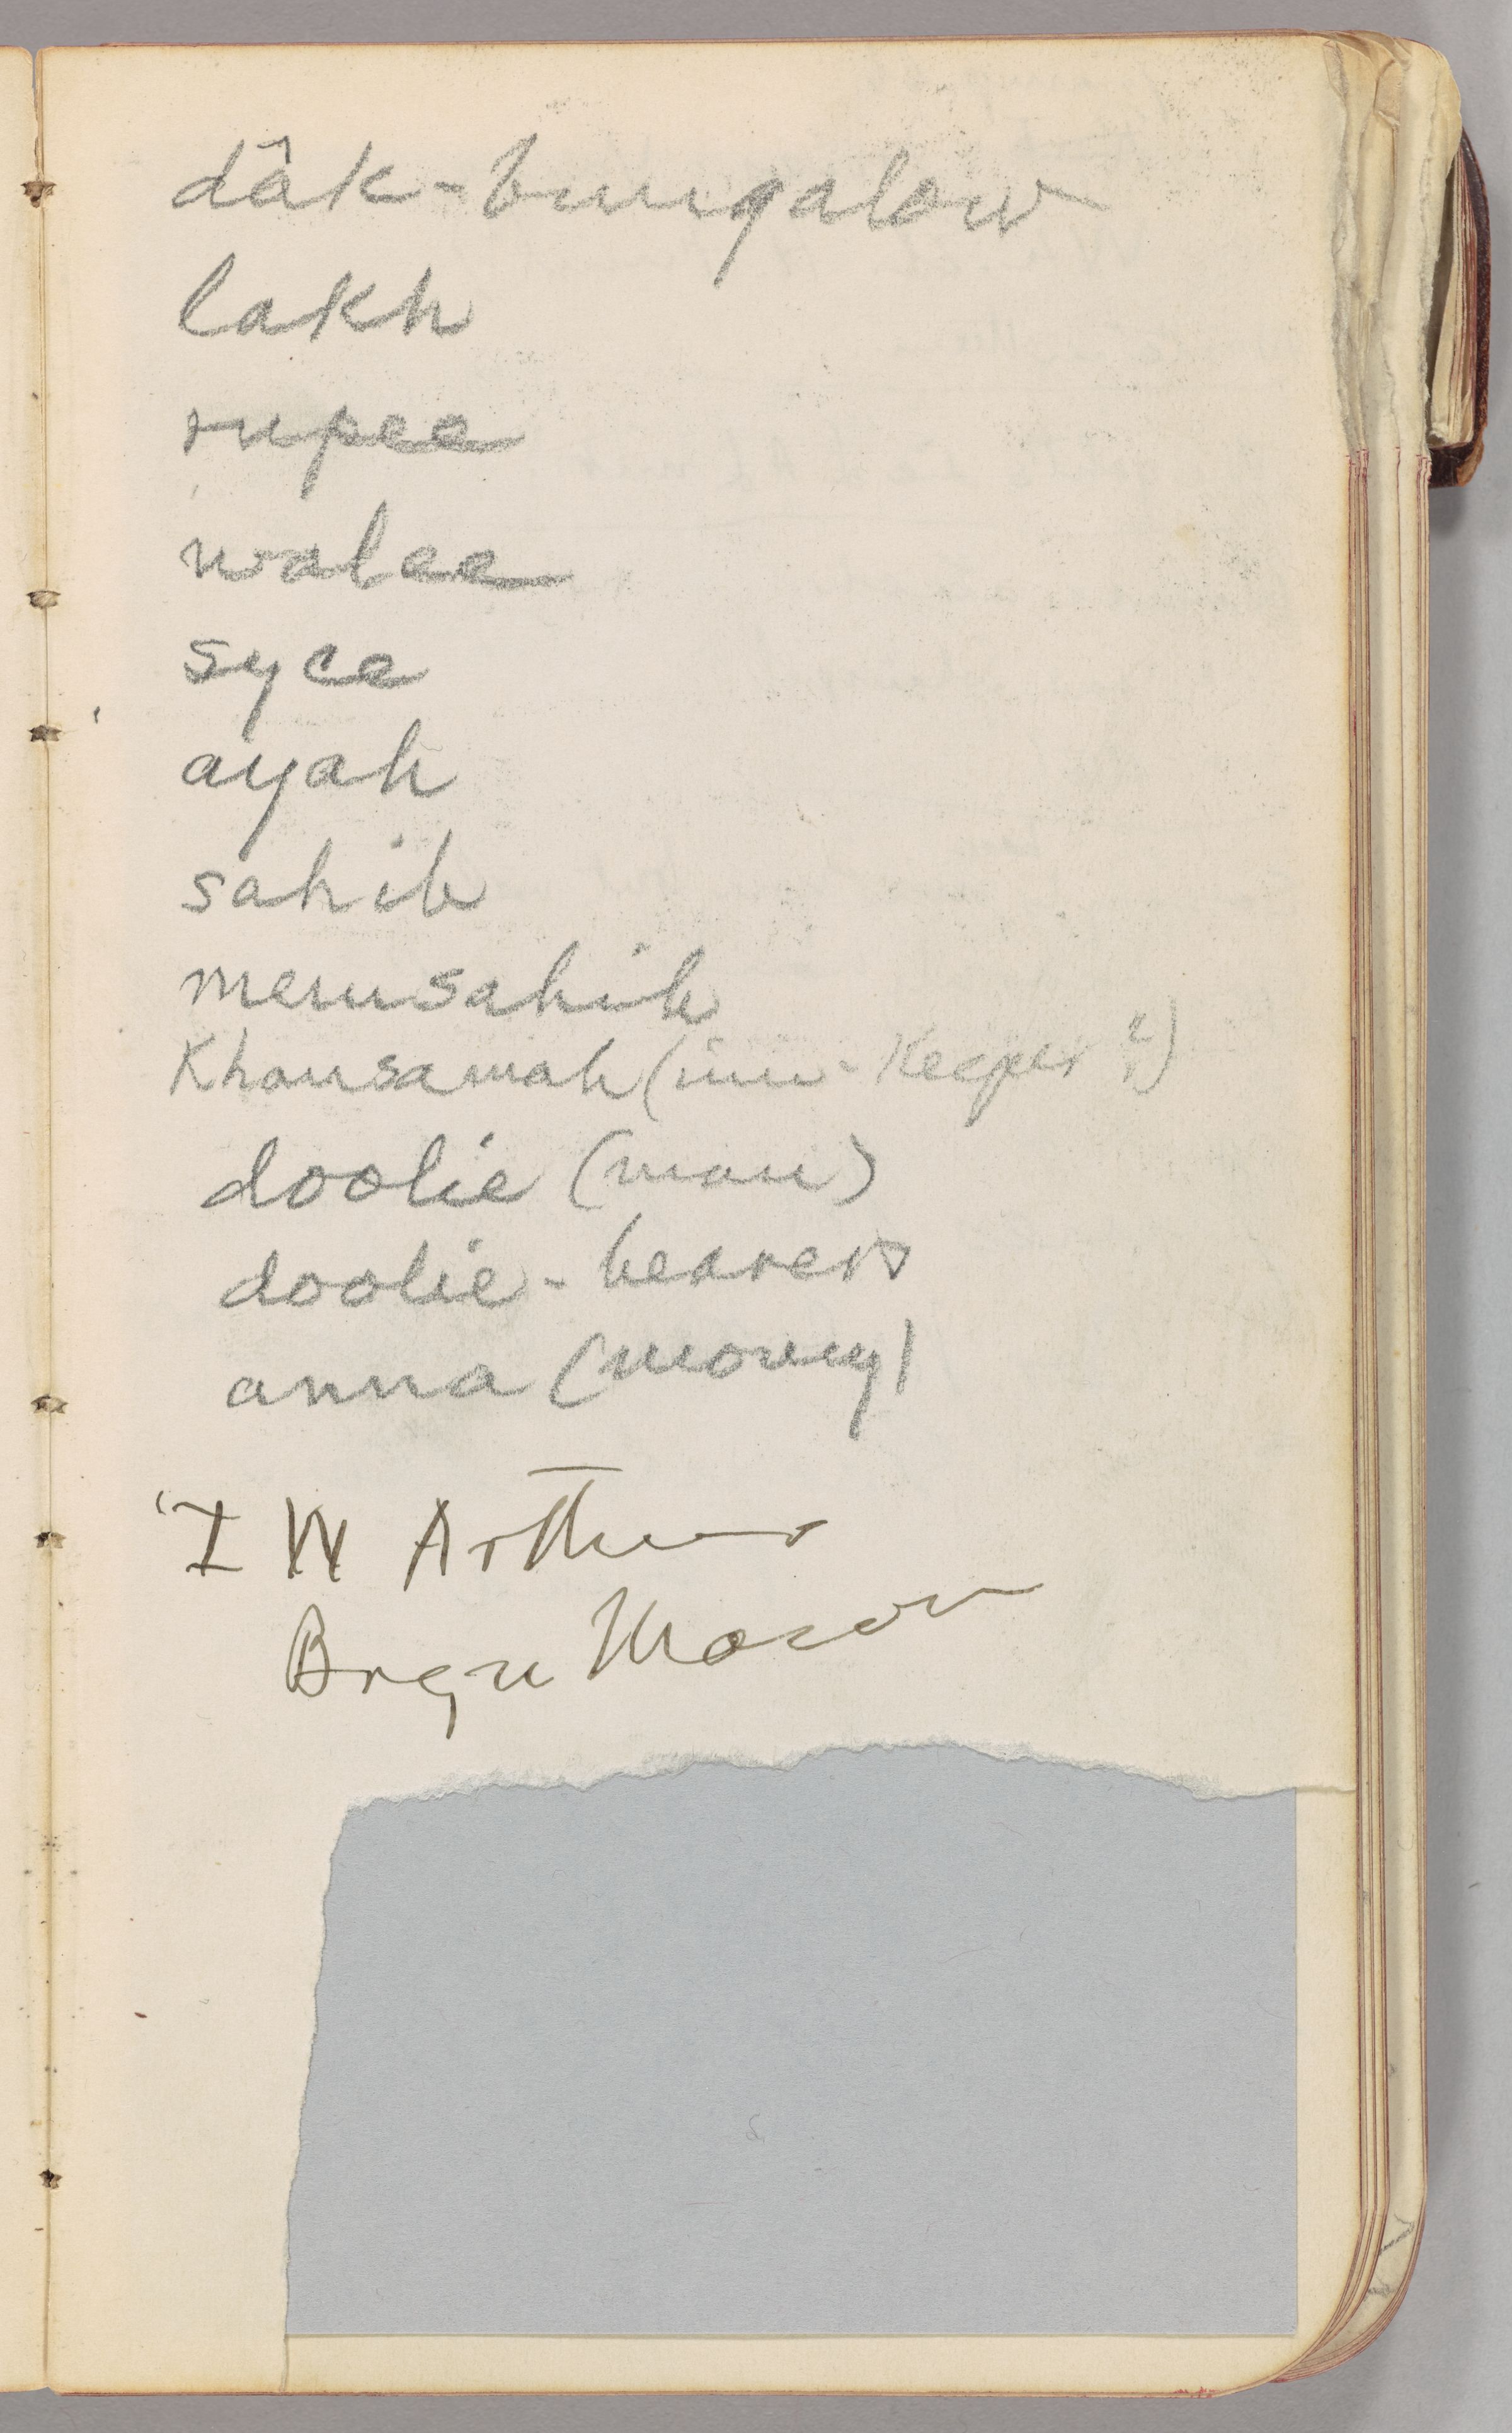 dâk-bungalow
lakh
rupee
walee
syce
ayah
sahib
memsahib
Khansamah (inn-Keeper?)
doolie (man)
doolie-bearers
anna (money)
Arthur
Mason